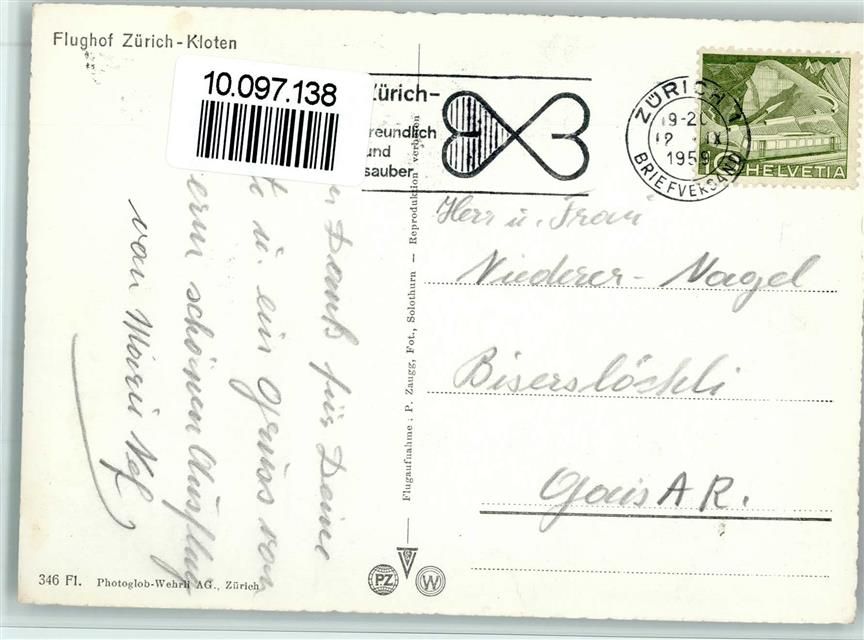 Flughof Zürich-Kloten
10.097.138
Zürich-
freundlich
und
sauber
ZÜRICH 1
19-20
12. IX
1959
BRIEFVERSAND
HELVETIA
Dank für Deine
u. ein Gruss von
schönen Ausflug
von
Herr u. Frau
Niederer-Nagel
Biserslöchli
Gais AR.
Flugaufnahme: P. Zaugg, Fot., Solothurn — Reproduktion verboten
346 Fl. Photoglob-Wehrli AG., Zürich
PZ
W